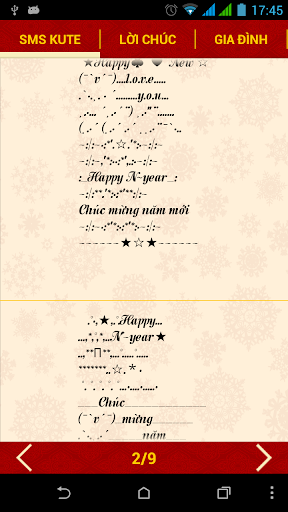 17:45
SMS KUTE
LỜI CHÚC
GIA ĐÌNH
★Happy♣ ♥ New ☆
(¯`v´¯)....l.o.v.e.....
.`·.¸.·´.........y.o.u...
~:/:~·:*'.☆.'*:·~:/:~
:_Happy N-year_:
Chúc mừng năm mới
------★☆★------
.·.★,..Happy...
...,*,'*,*,...N'-year★
Chúc
(¯`v´¯)_mừng
.`·.¸.·´ năm
2/9